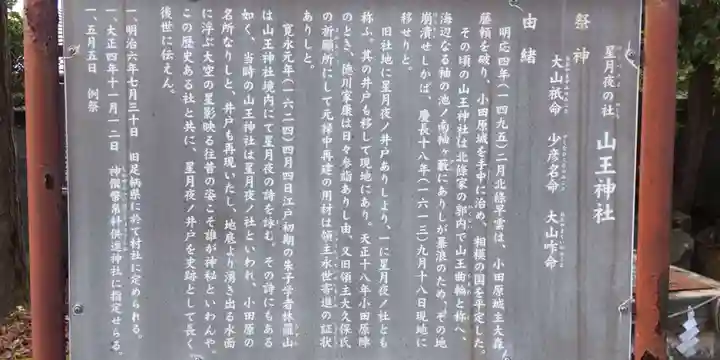 星月夜の社 山王神社
祭神
大山祇命 少彦名命 大山咋命
由緒
明応四年(一四九五)二月北條早雲は、小田原城主大森
藤頼を破り、小田原城を手中に治め、相模の国を平定した。
その頃の山王神社は北條家の郭内で山王曲輪と称へ、
海辺なる袖の池ノ南袖ヶ藪にありしが暴浪のため、その地
崩潰せしかば、慶長十八年(一六一三)九月十八日現地に
移せりと。
旧社地に星月夜ノ井戸ありしより、一に星月夜ノ社とも
称ふ。其の井戸も移して現地にあり。天正十八年小田原陣
のとき、徳川家康は日々参詣ありし由。又旧領主大久保氏
の祈願所にして元禄中再建の用材は領主永世寄進の証状
ありしと。
寛永元年(一六二四)四月四日江戸初期の朱子学者林羅山
は山王神社境内にて星月夜の詩を詠む。その詩にもある
如く、当時の山王神社は星月夜ノ社といわれ、小田原の
名所なりしと、井戸も再現いたし、地底より湧き出る水面
に浮ぶ大空の星影映る往昔の姿こそ誰が神秘といわんや。
この歴史ある社と共に、星月夜ノ井戸を史跡として長く
後世に伝えん。
一、明治六年七月三十日 旧足柄県に於て村社に定められる。
一、大正四年十一月十二日 神饌幣帛料供進神社に指定せらる。
一、五月五日 例祭